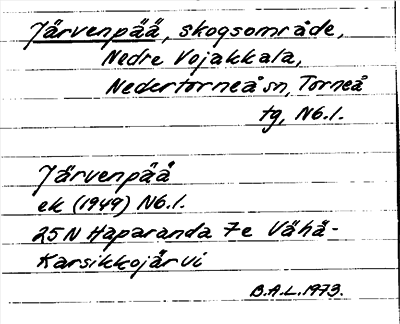 Järvenpää, skogsområde,
Nedre Vojakkala,
Nedertorneå sn, Torneå
tg, N6.1.
Järvenpää
ek (1949) N6.1.
25N Haparanda 7e Vähä-
Karsikkojärvi
B.A.L. 1973.